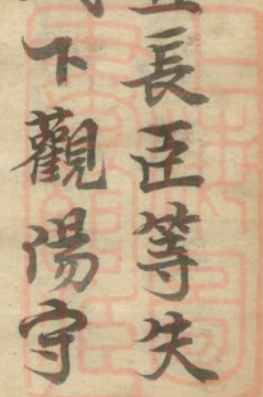 長臣等失
下觀陽守